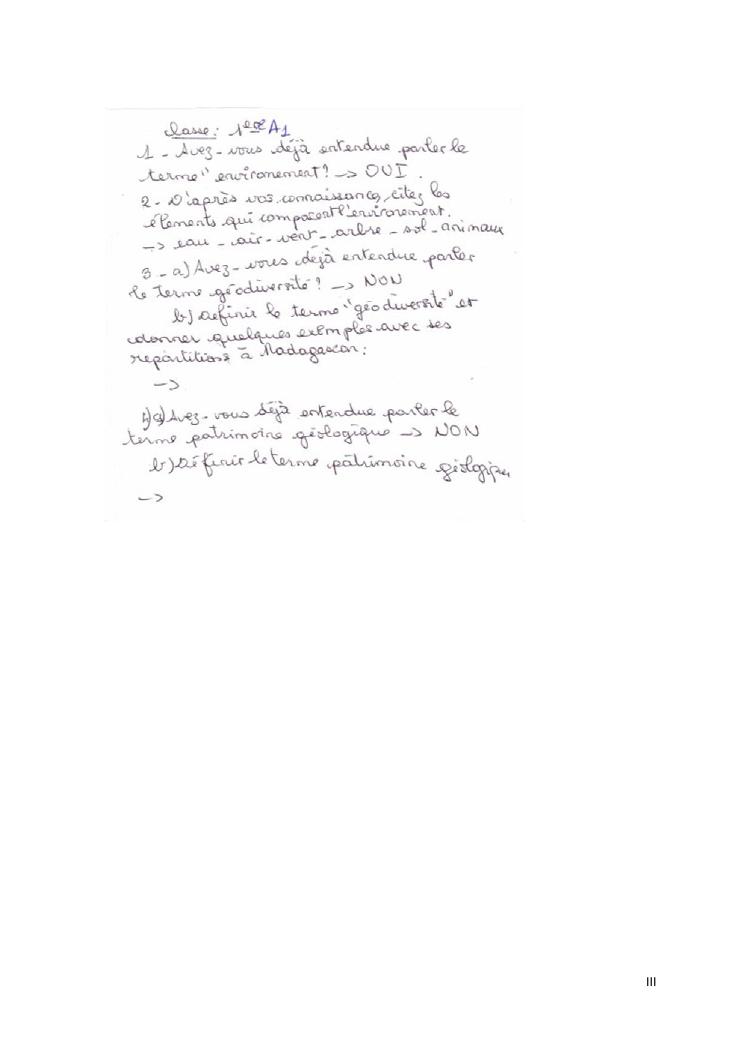 Classe : 1ère A1
1 - Avez-vous déjà entendue parler le
terme " environement ? -> OUI .
2 - D'après vos connaissances, citez les
élements qui composent l'environement.
-> eau - air - vent - arbre - sol - animaux
3 - a) Avez-vous déjà entendue parler
le terme géodiversité ? -> NON
b) Définir le terme "géodiversité" et
donner quelques exemples avec ses
repartitions à Madagascar :
->
4) a) Avez-vous déjà entendue parler le
terme patrimoine géologique -> NON
b) Définir le terme pâtrimoine géologique
->
III